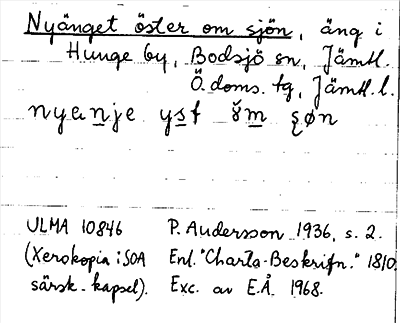 Nyänget öster om sjön, äng i
Hunge by, Bodsjö sn, Jämtl.
Ö. doms. tg, Jämtl. l.
ULMA 10846 P. Andersson 1936, s. 2.
(Xerokopia i SOA Enl. "Charta-Beskrifn." 1810.
särsk. kapsel). Exc. av E.Å. 1968.